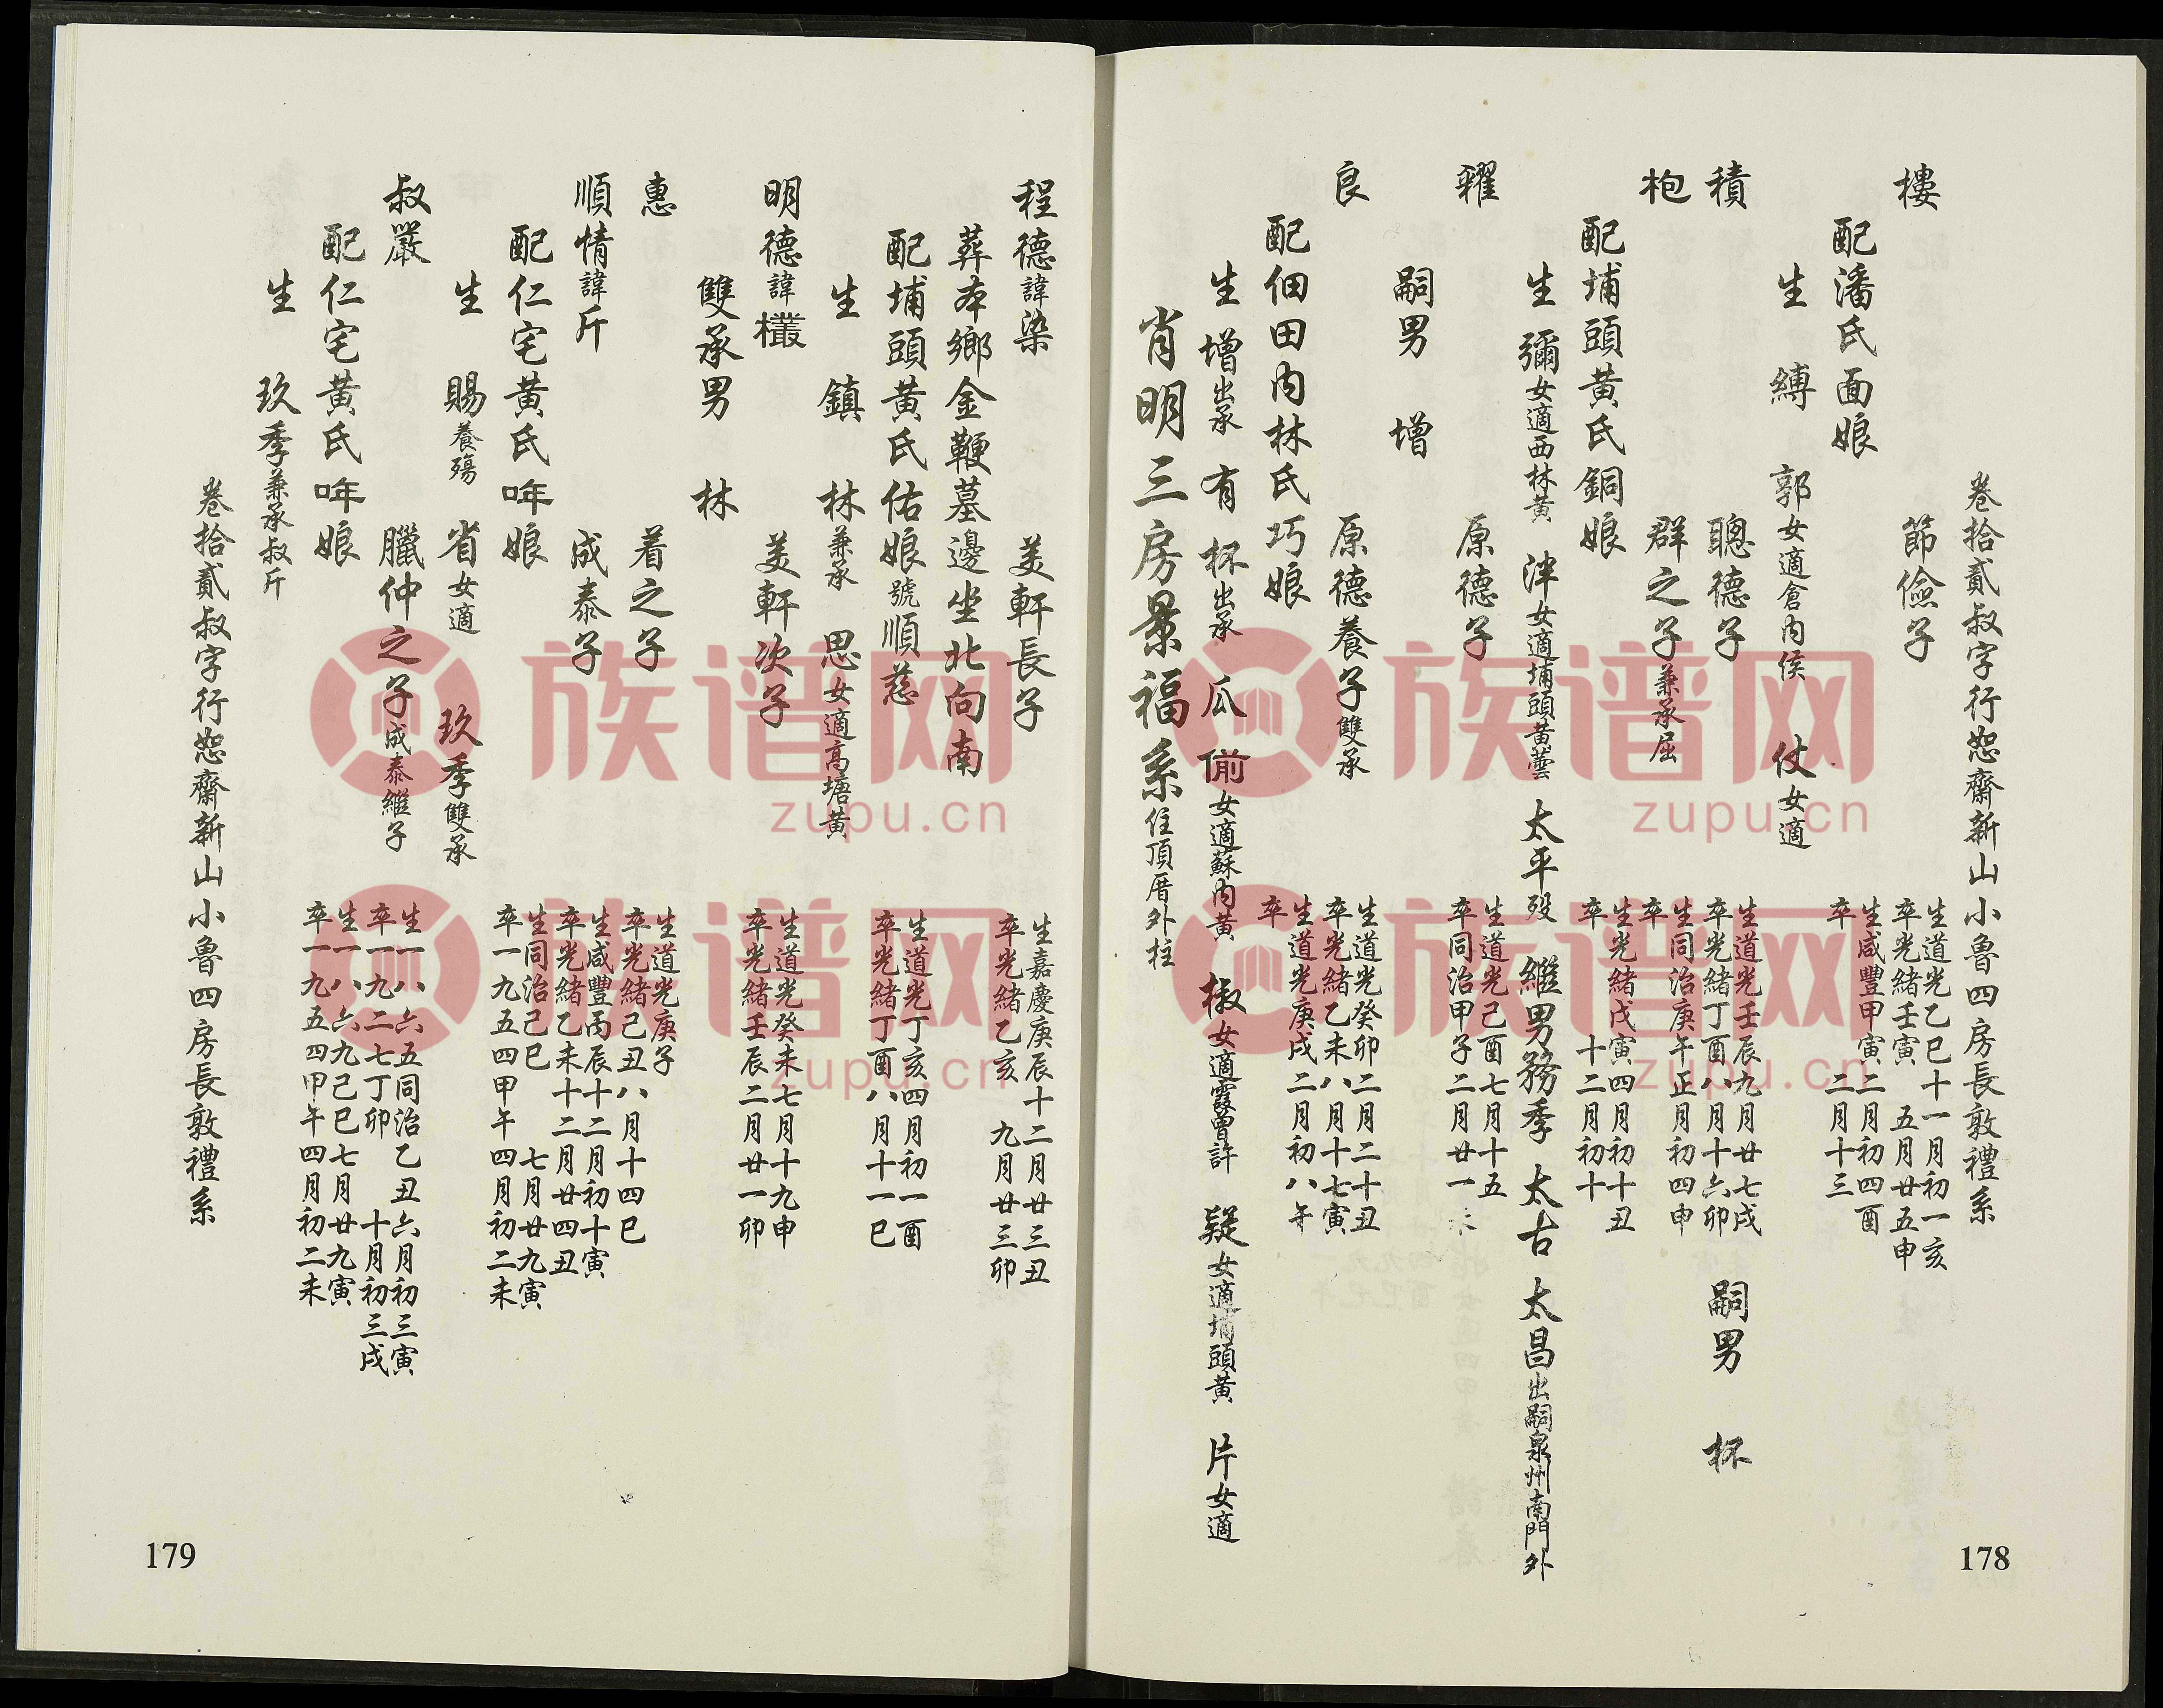 卷拾貳叔字行恕齋新山小魯四房長敦禮系
樓 節儉子 生道光乙巳十一月初一亥 卒光緒壬寅五月廿五申
配潘氏面娘 生咸豐甲寅二月初四酉 卒 二月十三
生 縛 郭女適倉內侯 仗女適
積 聰德子 生道光壬辰九月廿七戌 卒光緒丁酉八月十六卯 嗣男 杯
枹 群之子兼承屈 生同治庚午正月初四申 卒
配埔頭黃氏銅娘 生光緒戊寅四月初十丑 卒 十二月初十
生 彌女適西林黃 泮女適埔頭黃蕓 太平歿 繼男務季 太古 太昌出嗣泉州南門外
糶 原德子 生道光己酉七月十五 卒同治甲子二月廿一未
嗣男 增
良 原德養子雙承 生道光癸卯二月二十丑 卒光緒乙未八月十七寅
配佃田內林氏巧娘 生道光庚戌二月初八午 卒
生 增出承 有 杯出承 瓜 偷女適蘇內黃 椒女適霞曾許 疑女適埔頭黃 片女適
肖明三房景福系住頂厝外柱
178
程德諱染 美軒長子 生嘉慶庚辰十二月廿三丑 卒光緒乙亥九月廿三卯
葬本鄉金鞭墓邊坐北向南
配埔頭黃氏佑娘號順慈 生道光丁亥四月初一酉 卒光緒丁酉八月十一巳
生 鎮 林兼承 思女適高塘黃
明德諱欉 美軒次子 生道光癸未七月十九申 卒光緒壬辰二月廿一卯
雙承男 林
惠 着之子 生道光庚子 卒光緒己丑八月十四巳
順情諱斤 成泰子 生咸豐丙辰十二月初十寅 卒光緒乙未十二月廿四丑
配仁宅黃氏哖娘 生同治己巳七月廿九寅 卒一九五四甲午四月初二未
生 賜養殤 省女適 玖季雙承
叔嚴 臘仲之子成泰繼子 生一八六五同治乙丑六月初三寅 卒一九二七丁卯十月初三戌
配仁宅黃氏哖娘 生一八六九己巳七月廿九寅 卒一九五四甲午四月初二未
生 玖季兼承叔斤
卷拾貳叔字行恕齋新山小魯四房長敦禮系
179
族谱网
zupu.cn
族谱网
zupu.cn
族谱网
zupu.cn
族谱网
zupu.cn